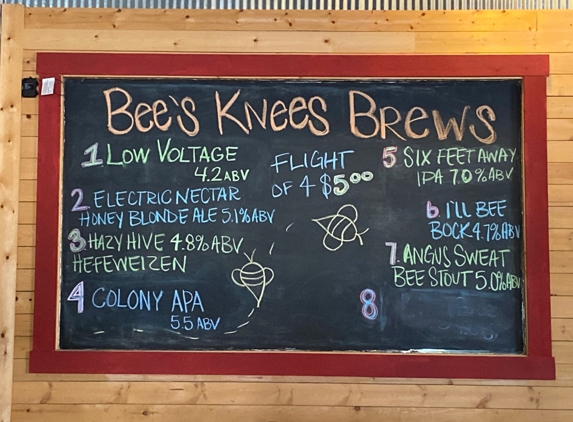 Bee's Knees Brews
1 Low Voltage
4.2 ABV
2 Electric Nectar
Honey Blonde Ale 5.1% ABV
3 Hazy Hive 4.8% ABV
Hefeweizen
4 Colony APA
5.5 ABV
Flight
of 4 $5.00
5 Six Feet Away
IPA 7.0% ABV
6. I'll Bee
Bock 4.7% ABV
7. Angus Sweat
Bee Stout 5.0% ABV
8